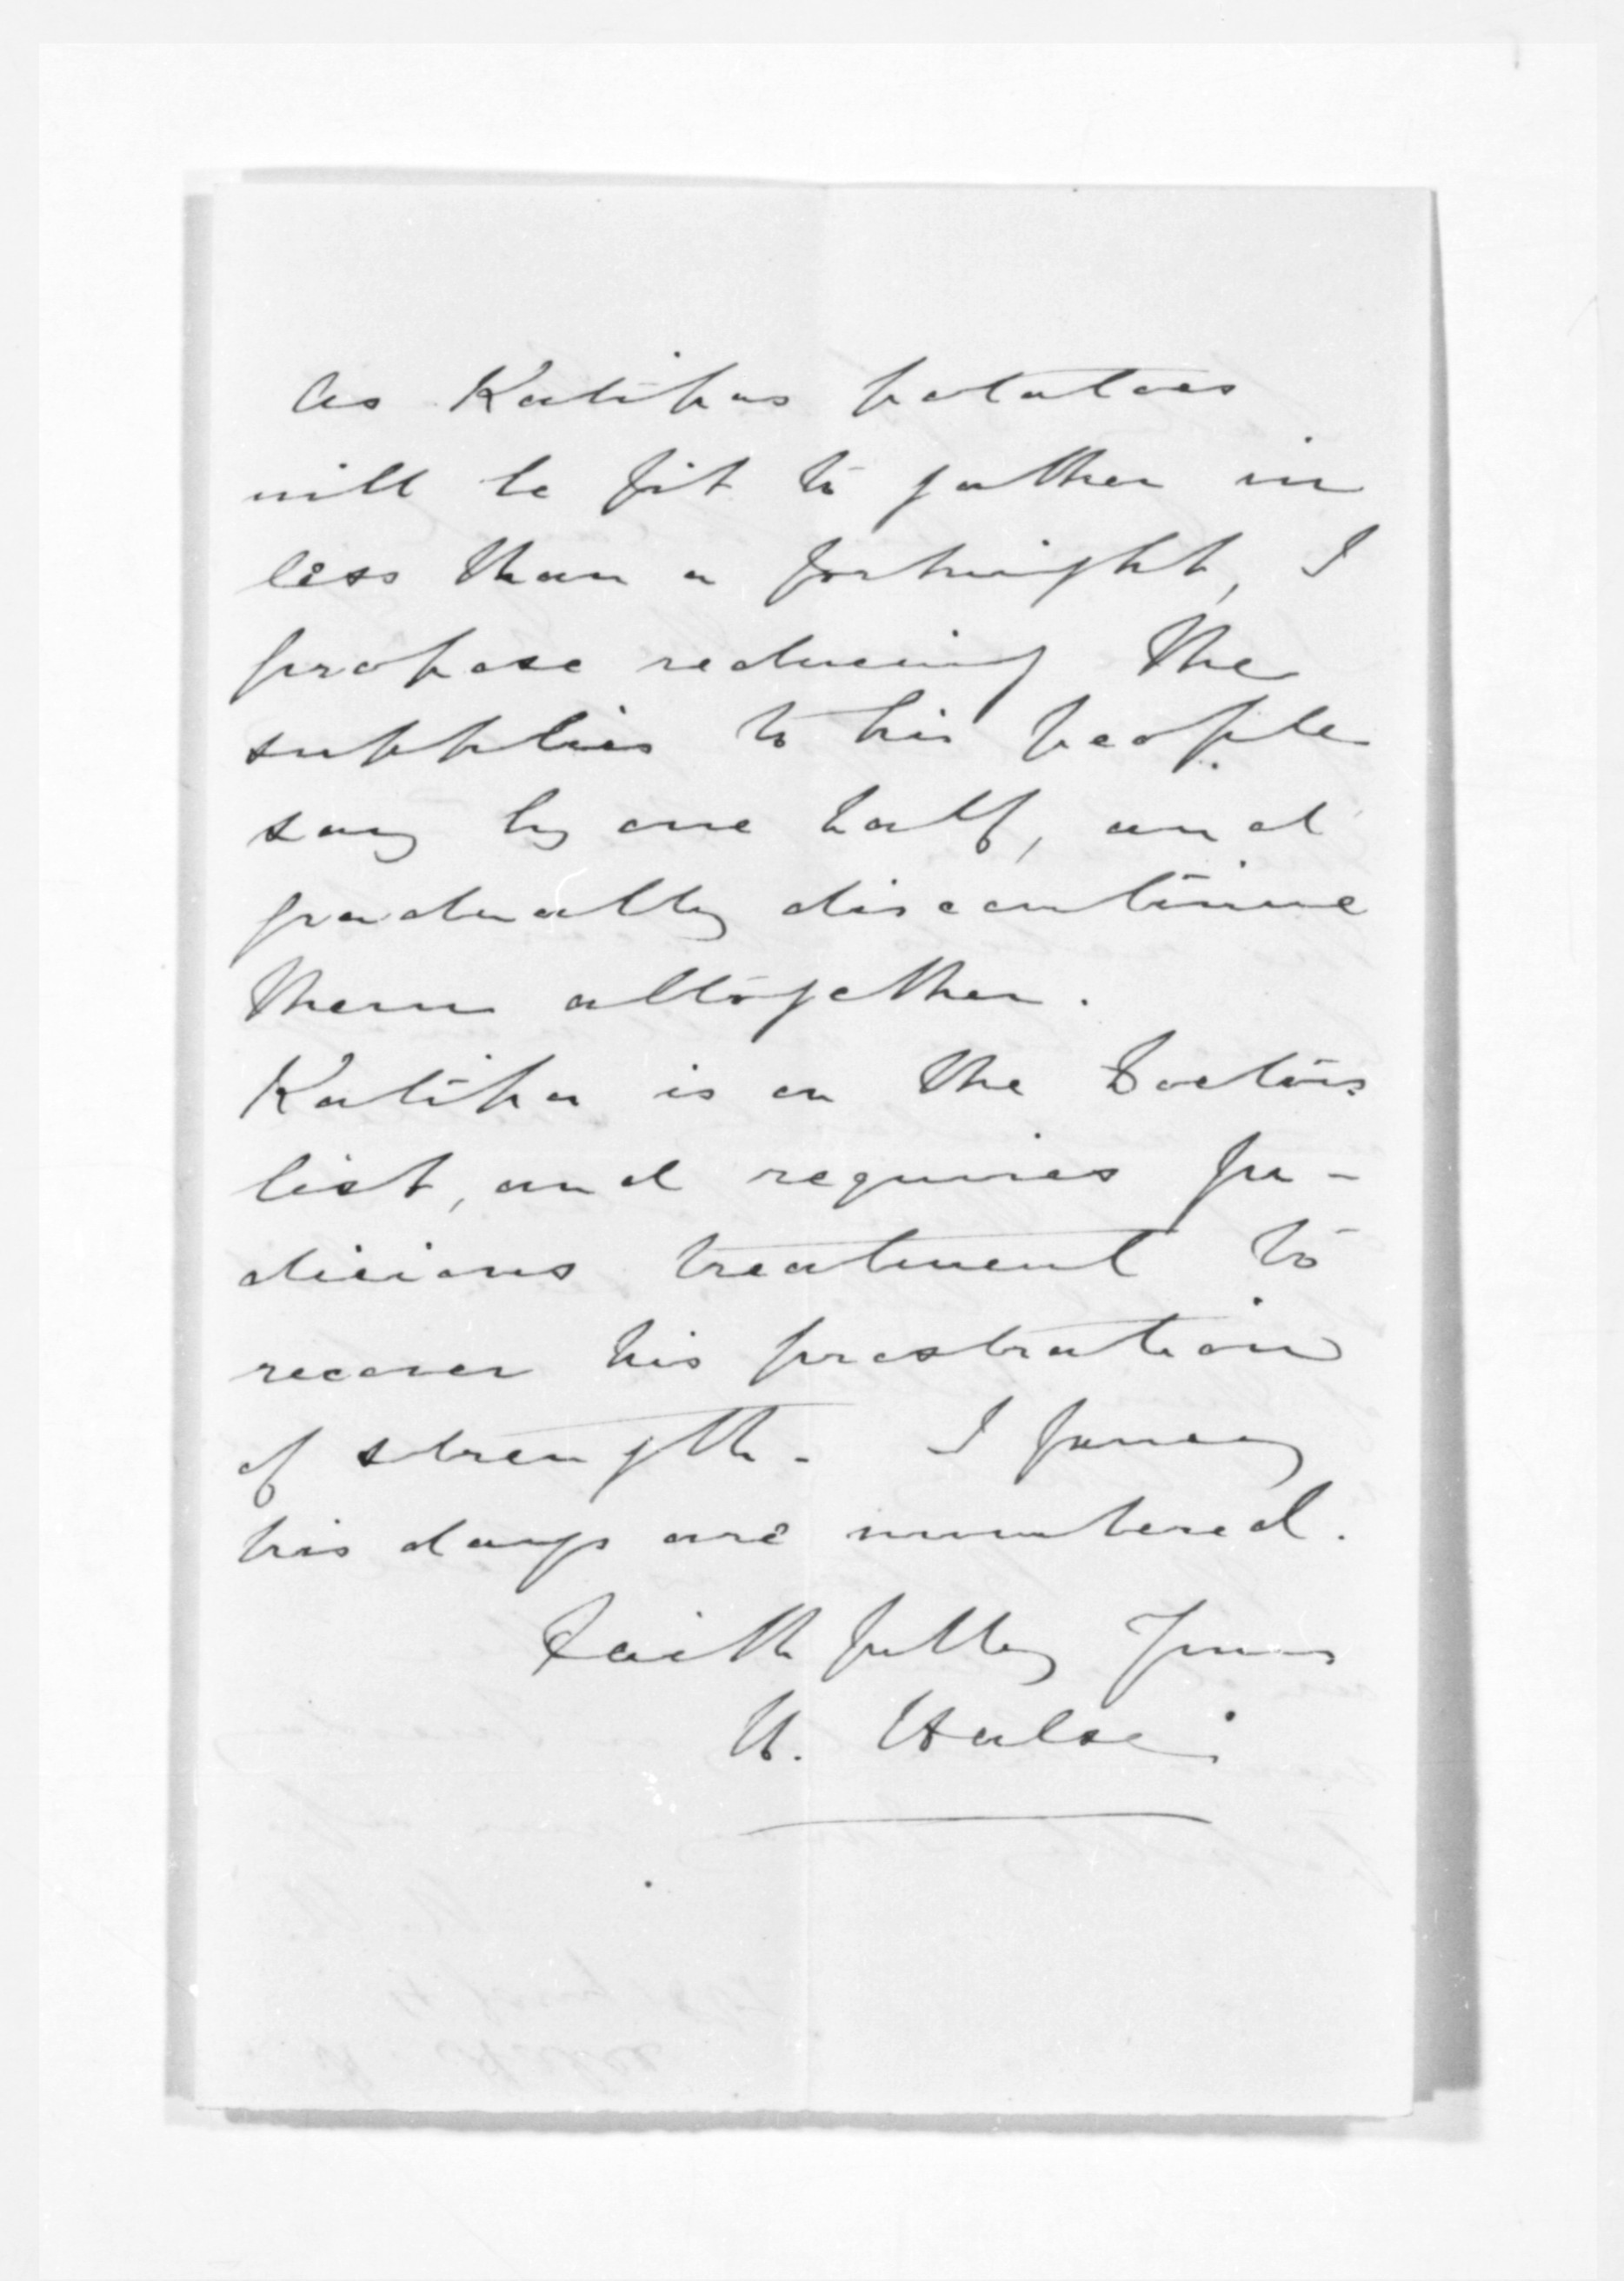 As Katipas potatoes
will be fit to gather in
less than a fortnight, I
propose reducing the
supplies to his people
say by one half, and
gradually discontinue
them altogether.
Katipa is on the Doctors
list, and requires ju-
dicious treatment to
recover his prostration
of strength. I fancy
his days are numbered.
Faithfully Yours
H. Halse